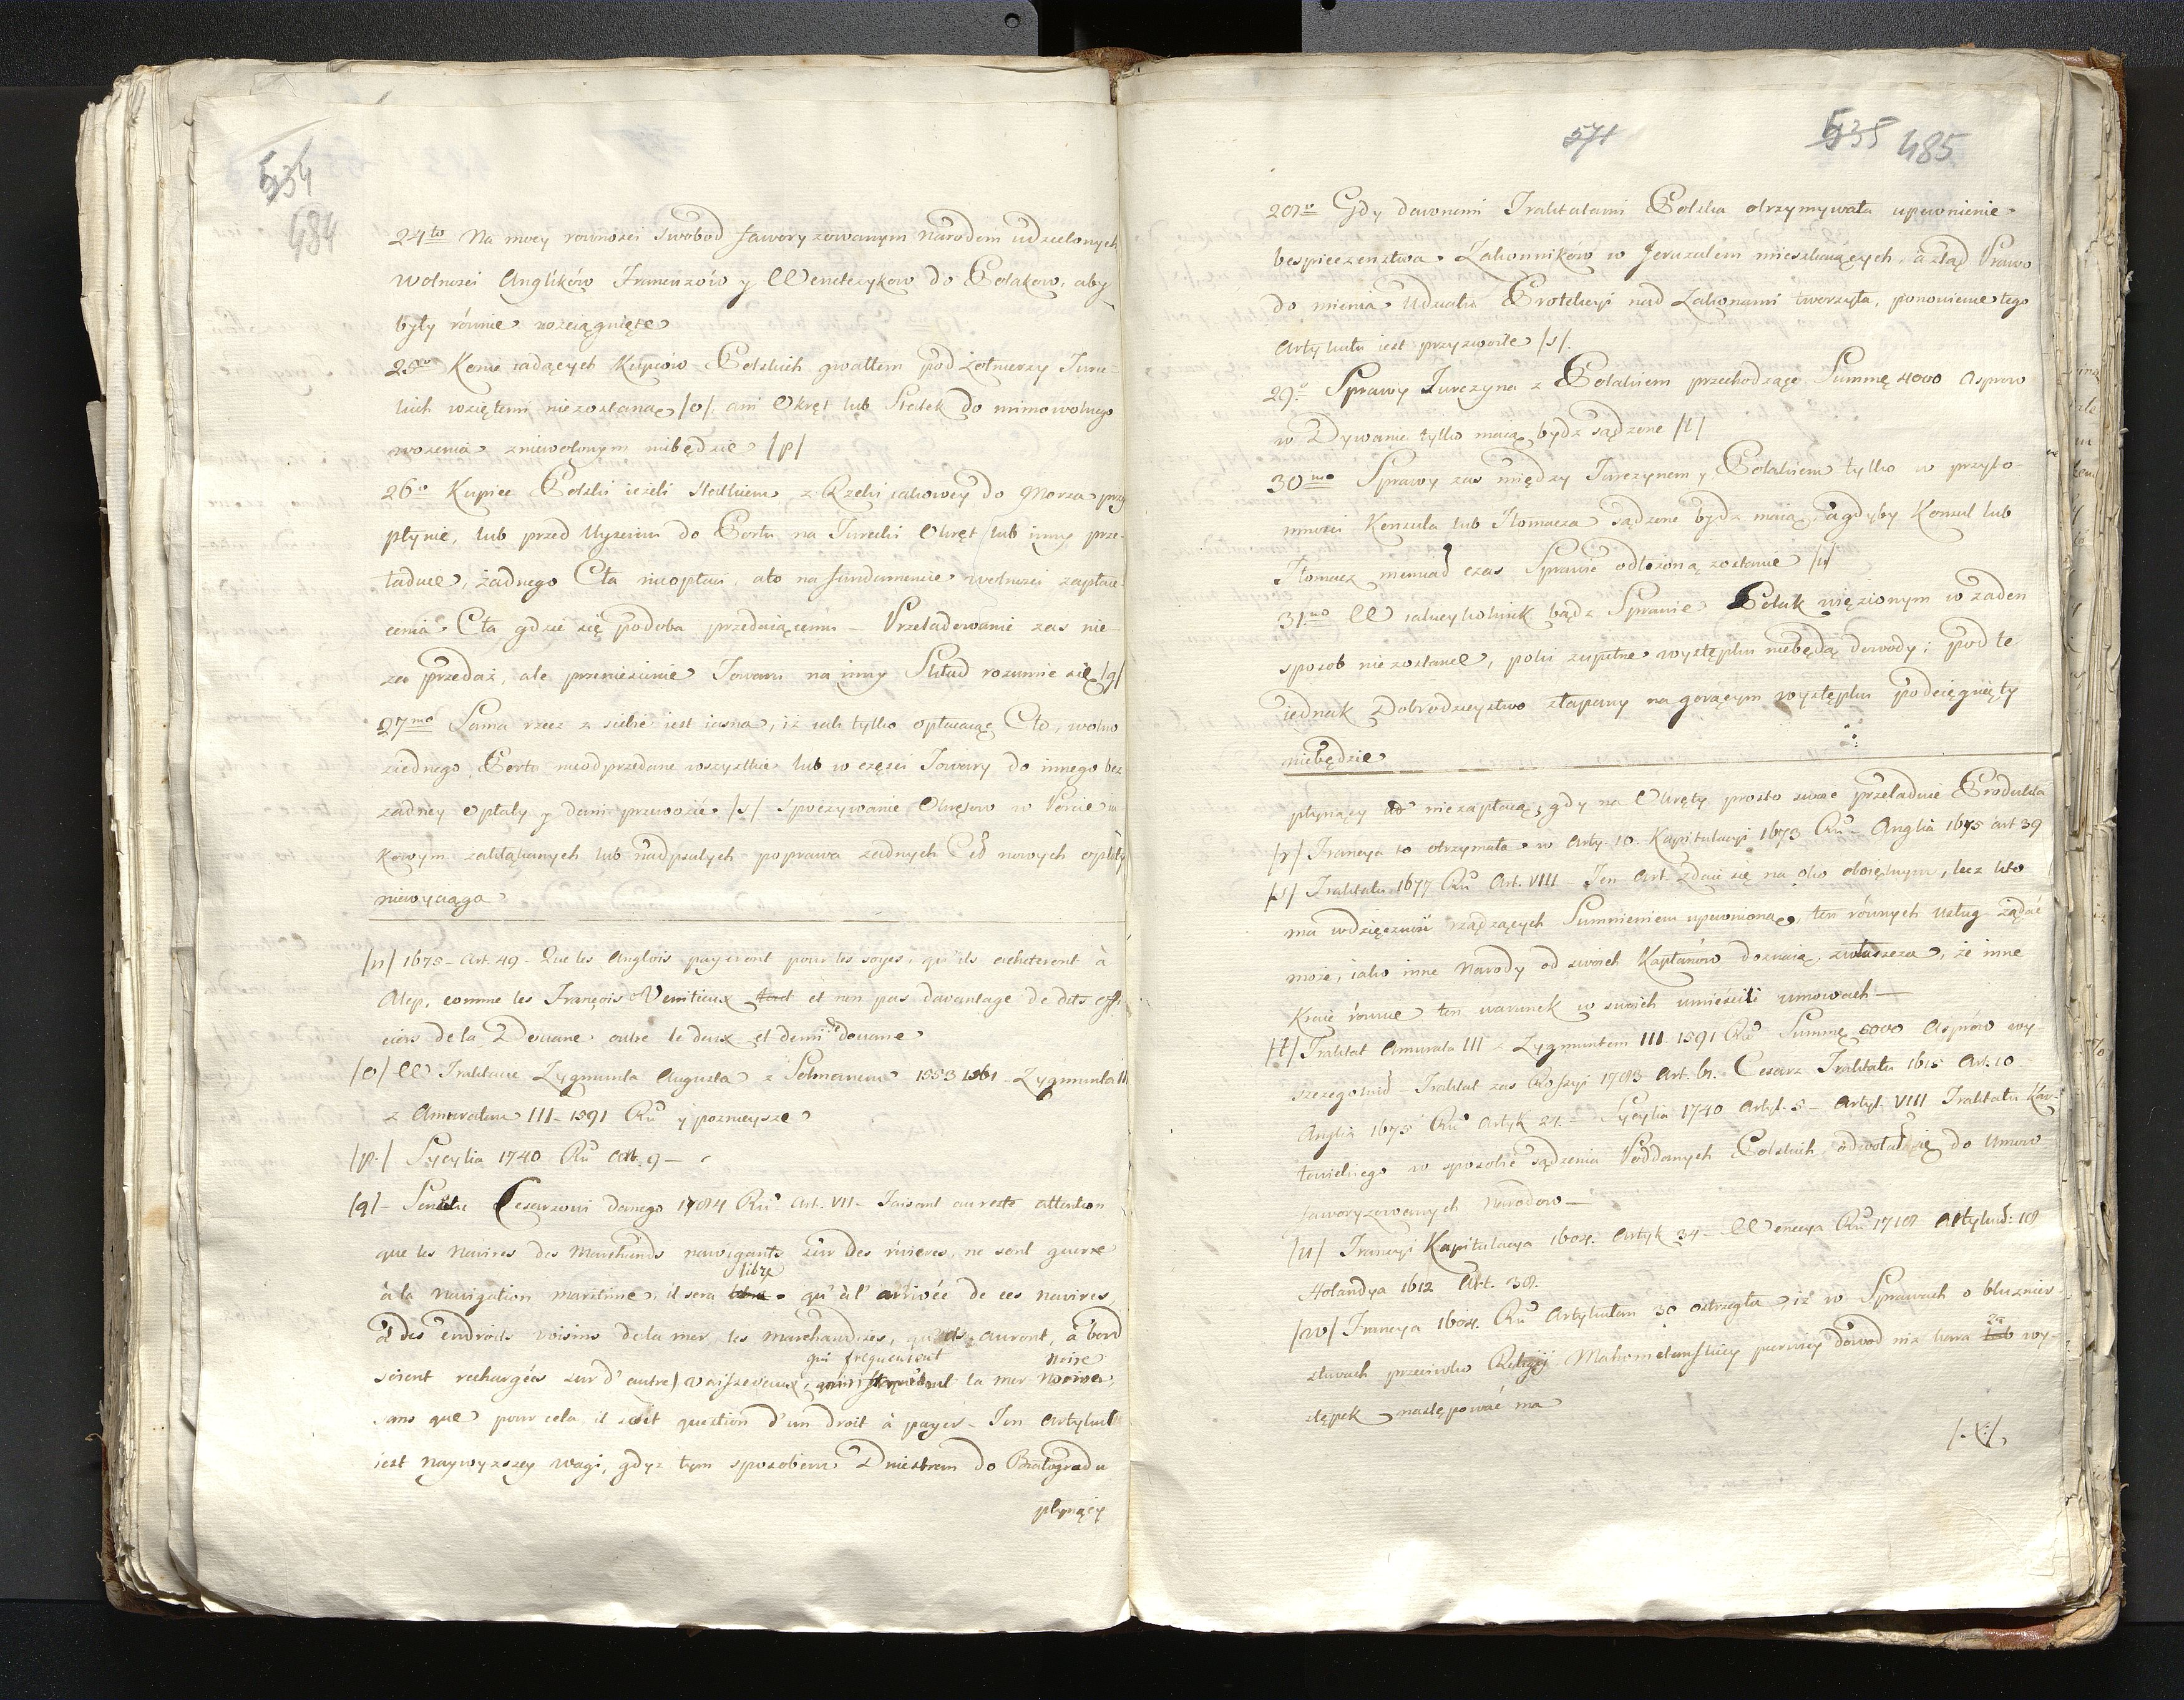 534
484
24to Na mocy rownosci swobod faworyzowanym narodom udzielonych
wolnosci Anglików Francuzów y Wenetczykow do Polakow, aby
były równie rozciągnięte
25to Konie iadących Kupców Polskich gwałtem pod żołnierzy Ture-
kich wziętemi niezostaną /o/ ani Okręt lub Statek do mimowolnego
wozenia zniewolonym niebędzie /p/
26o Kupiec Polski ieżeli statkiem z Rzeki iakowey do Morza przy
płynie, lub przed Uyściem do Portu na Turecki Okręt lub inny prze-
ładuie, żadnego Cła nieopłaci, ato na fundamencie wolnosci zapłace-
cenia Cła gdzie się podoba przedaiącemu – Przeładowanie zas nie-
za przedaż, ale przeniesienie Towaru na inny Skład rozumie się /q/
27mo Sama rzecz z siebie iest iasna, iż raz tylko opłacaiąc Cło, wolno
ziednego Portu nieodprzedane wszystkie lub w części Towary do innego bez
zadney Opłaty y dani przewozic /r/ spoczywanie Okrętow w Porcie ia-
kowym zabłąkanych lub nadpsutych poprawa żadnych Ceł nowych opłaty
niewyciąga
/n/ 1675 – Art. 49 – Que les Anglois payeront pour les soyes, qu'ils acheteront à
Alep, comme les François Venitiens et non pas davantage de dts offi-
ciers de la Douane outre le deux et demi de douane
/o/ W Traktacie Zygmunta Augusta z Solimanem 1553 1561 – Zygmunta III
z Amuratem III – 1591 Ru y poznieysze
/p/ Sycylia 1740 Ru Art. 9 –
/q/ – Senedu Cesarzowi danego 1784 Ru Art. VII – Faisant au reste attention
que les Navires des Marchands navigants sur des rivieres, ne sont guere
libre
à la navigation maritime, il sera qu'à l'arrivée de ces navires,
à des endroits voisins de la mer, les marchandises, qu'ils auront, à bord
qui frequentent noire
soient rechargées sur d'autres vaisseaux, la mer
sans que pour cela il soit question d'un droit à payer – Ten Artykuł
iest naywyzszey wagi, gdyz tym sposobem Dniestrem do Białogrodu
płynący
571
535 485
28o Gdy dawnemi Traktatami Polska otrzymywała upewnienie
bespieczenstwa Zakonników w Jeruzalem mieszkaiących, a ztąd Prawo
do mienia Udziału Protekcyi nad Zakonami tworzyła, ponowienie tego
Artykułu iest przyzwoite /s/.
29o Sprawy Turczyna z Polakiem przechodzące Summę 4000 Asprow
w Dywanie tylko maią bydz sądzone /t/
30mo Sprawy zas między Turczynem y Polakiem tylko w przyto-
mnosci Konsula lub Tłomacza sądzone bydz maią, a gdyby Konsul lub
Tłomacz niemiał czas Sprawie odłożoną zostanie /u/
31mo W iakieykolwiek bądz Sprawie Polak więzionym w zaden
sposob niezostanie, poki zupełne występku niebędą dowody; pod te
iednak Dobrodzieystwo złapany na gorącym występku podciągnięty
niebędzie
płynący niezapłacą, gdy na Okręty prosto swoie przeładuie Produkta
/r/ Francya to otrzymała w Arty. 10. Kapitulacyi 1673 Ru – Anglia 1675 art 39
/s/ Traktatu 1677 Ru Art. VIII – Ten Art. zdaie się na oko oboiętnym, lecz kto
ma wdzięcznosć rządzących Sumnieniem upewnioną, ten równych usług żądać
może, iako inne Narody od swoich Kapłanów doznaią, zwłaszcza, że inne
Kraie równie ten warunek w swoich umieścili umowach –
/t/ Traktat Amurata III z Zygmuntem III 1591 Ru Summę 6000 Asprów wy-
szczegolnił – Traktat zas Rossyi 1783 Art. 61. Cesarz Traktatu 1615 Art. 10
Anglia 1675 Ru Artyk 24. – Sycylia 1740 Artyk. 5 – Artyk. VIII Traktatu Kar-
łowickiego w sposobie sądzenia Poddanych Polskich, odwołał się do Umow
faworyzowanych Narodow –
/u/ Francyi Kapitulacya 1604. Artyk 34 – Wenecya Ru 1718 Artykuł: 18
Holandya 1612 Art. 38.
/w/ Francya 1604. Ru Artykułem 30 ostrzegła, iż w Sprawach o bluznier-
za
stwach przeciwko Religij Mahometanskiey pierwiey dowod niz kara wy-
stępek następować ma